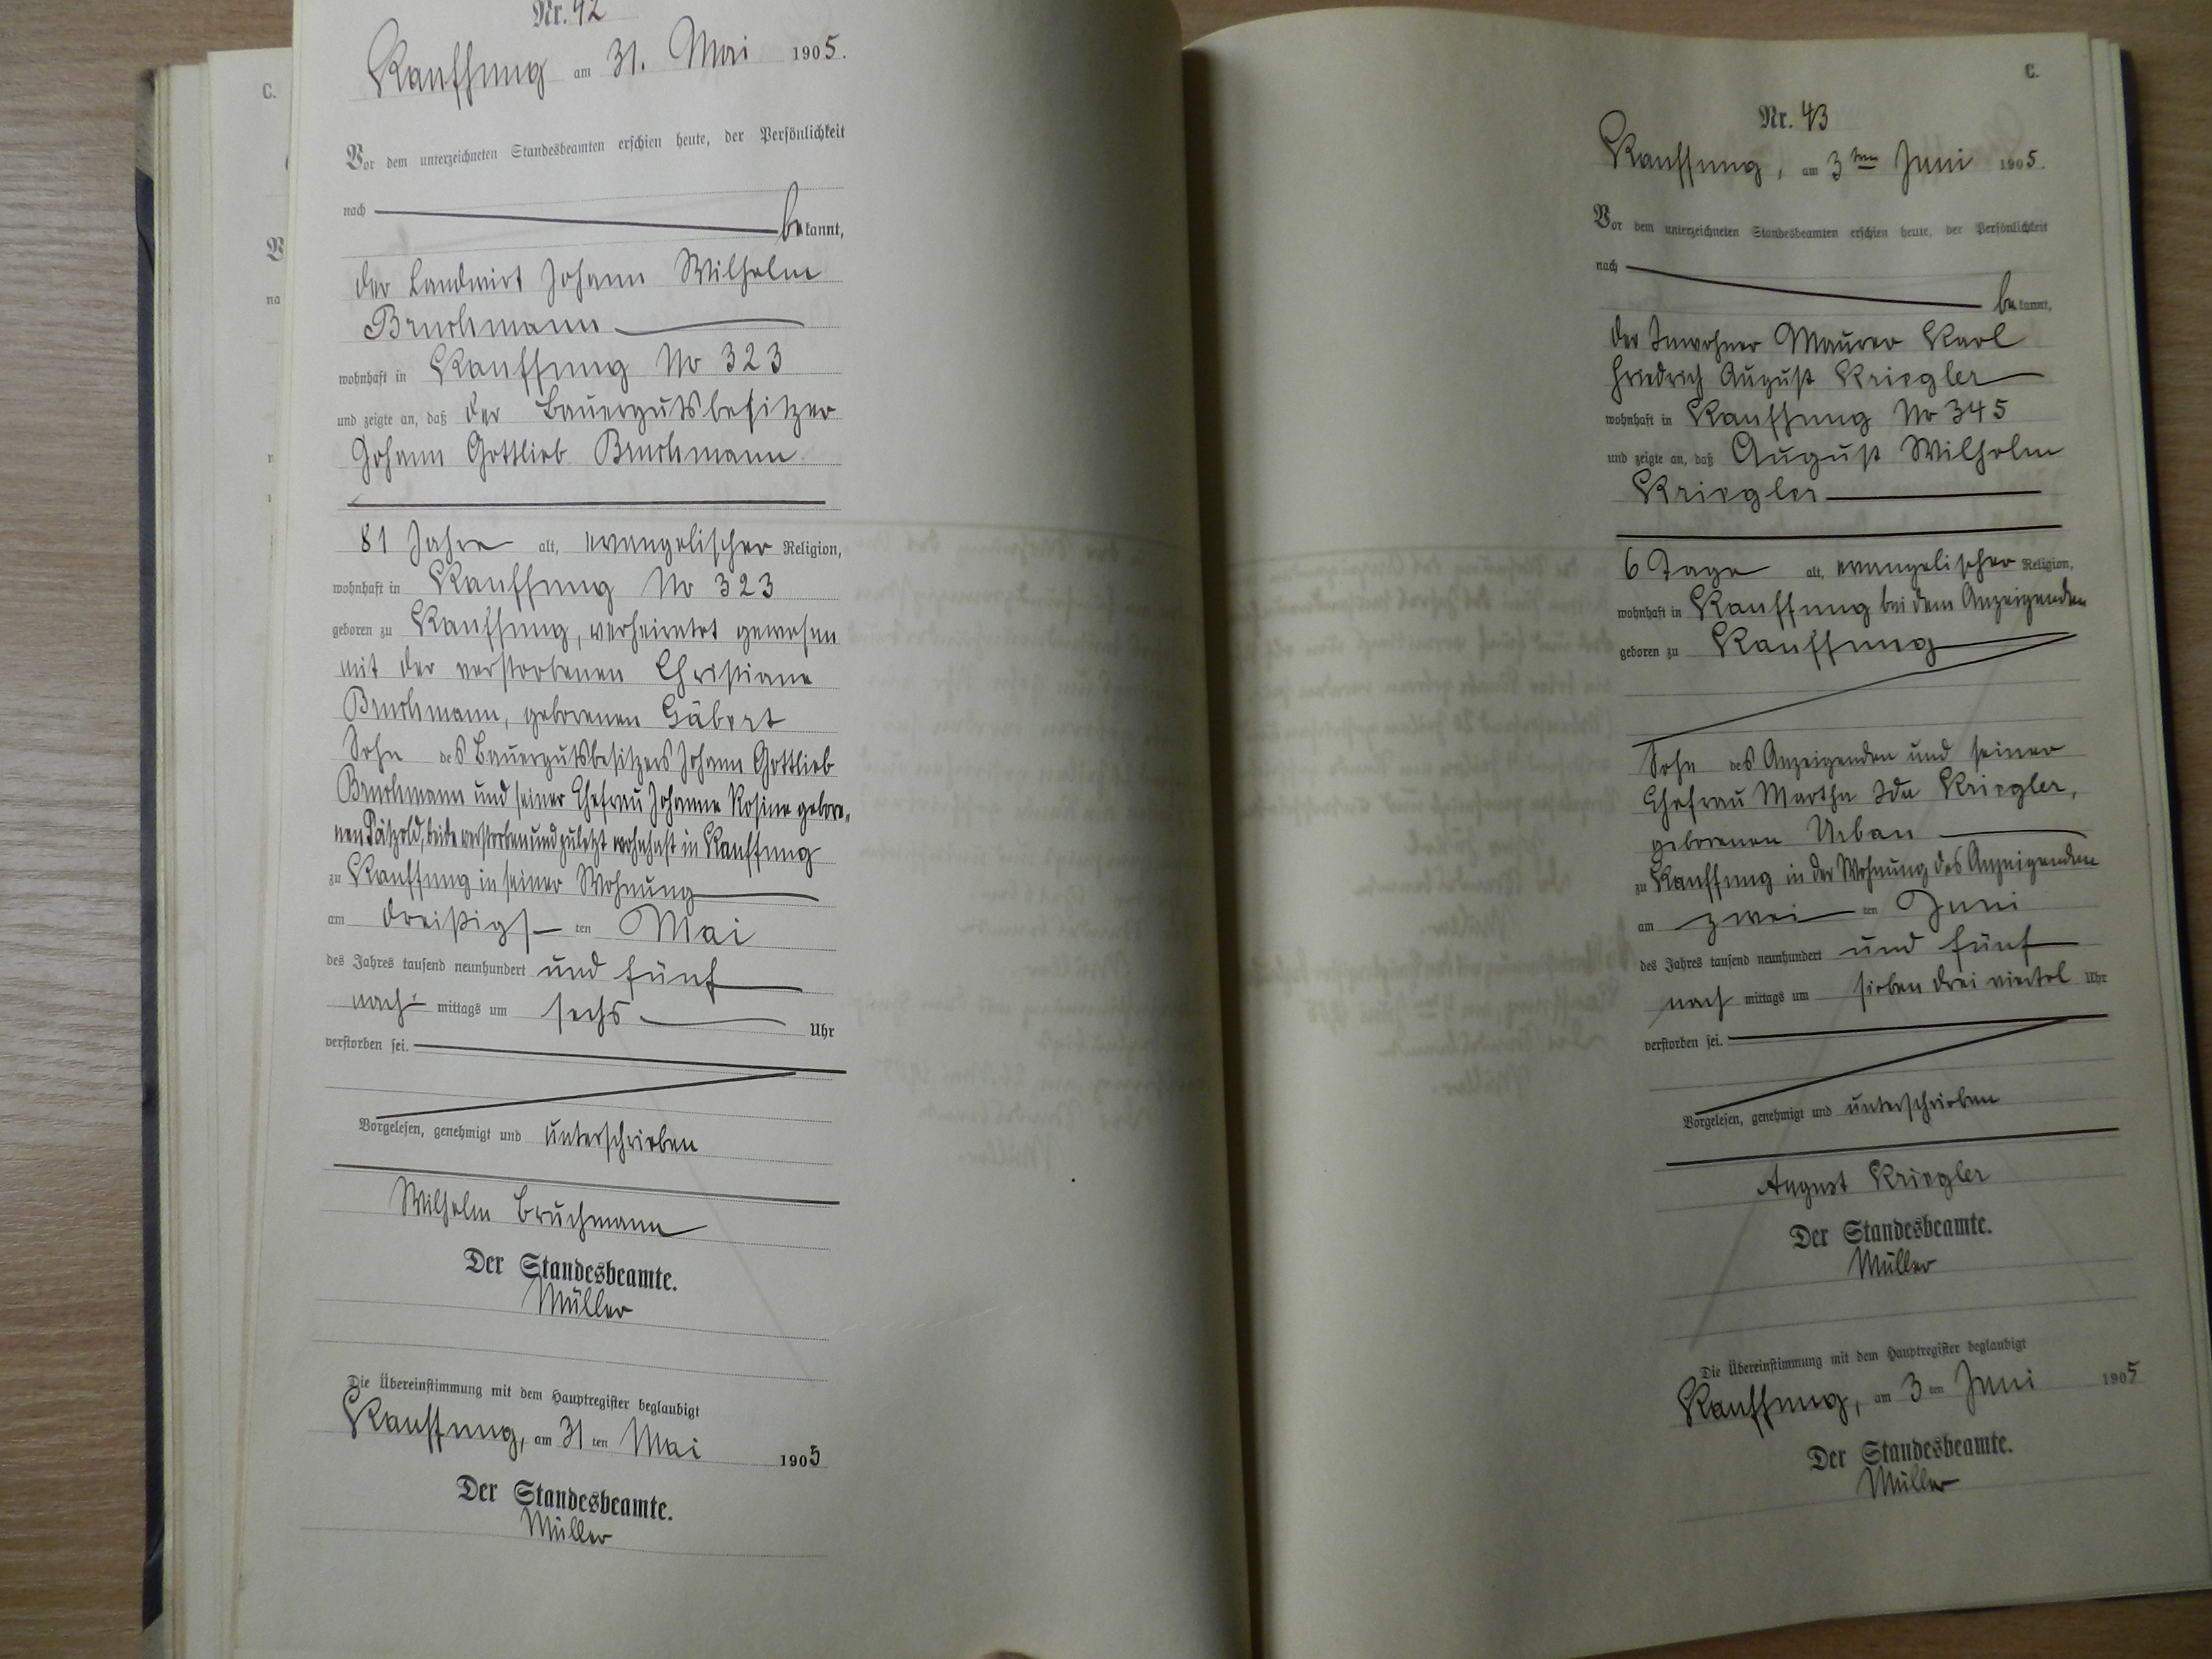 C.
Nr. 42
Kauffung am 31. Mai 1905.
Vor dem unterzeichneten Standesbeamten erschien heute, der Persönlichkeit
nach bekannt,
der Landwirt Johann Wilhelm
Bruchmann
wohnhaft in Kauffung No 323
und zeigte an, daß der Bauergutsbesitzer
Johann Gottlieb Bruchmann
81 Jahre alt, evangelischer Religion,
wohnhaft in Kauffung No 323
geboren zu Kauffung, verheiratet gewesen
mit der verstorbenen Christiane
Bruchmann, geborenen Gäbert
Sohn des Bauergutsbesitzers Johann Gottlieb
Bruchmann und seiner Ehefrau Johanne Rosine gebore-
nen Pätzold, beide verstorben und zuletzt wohnhaft in Kauffung
zu Kauffung in seiner Wohnung
am dreißigsten Mai
des Jahres tausend neunhundert und fünf
nachmittags um sechs Uhr
verstorben sei.
Vorgelesen, genehmigt und unterschrieben
Wilhelm Bruchmann
Der Standesbeamte.
Müller
Die Übereinstimmung mit dem Hauptregister beglaubigt
Kauffung, am 31ten Mai 1905
Der Standesbeamte.
Müller
C.
Nr. 43
Kauffung, am 3ten Juni 1905.
Vor dem unterzeichneten Standesbeamten erschien heute, der Persönlichkeit
nach bekannt,
der Inwohner Maurer Karl
Friedrich August Kriegler
wohnhaft in Kauffung No 345
und zeigte an, daß August Wilhelm
Kriegler
6 Tage alt, evangelischer Religion,
wohnhaft in Kauffung bei dem Anzeigenden
geboren zu Kauffung
Sohn des Anzeigenden und seiner
Ehefrau Martha Ida Kriegler,
geborenen Urban
zu Kauffung in der Wohnung des Anzeigenden
am zweiten Juni
des Jahres tausend neunhundert und fünf
nachmittags um sieben drei viertel Uhr
verstorben sei.
Vorgelesen, genehmigt und unterschrieben
August Kriegler
Der Standesbeamte.
Müller
Die Übereinstimmung mit dem Hauptregister beglaubigt
Kauffung, am 3ten Juni 1905
Der Standesbeamte.
Müller